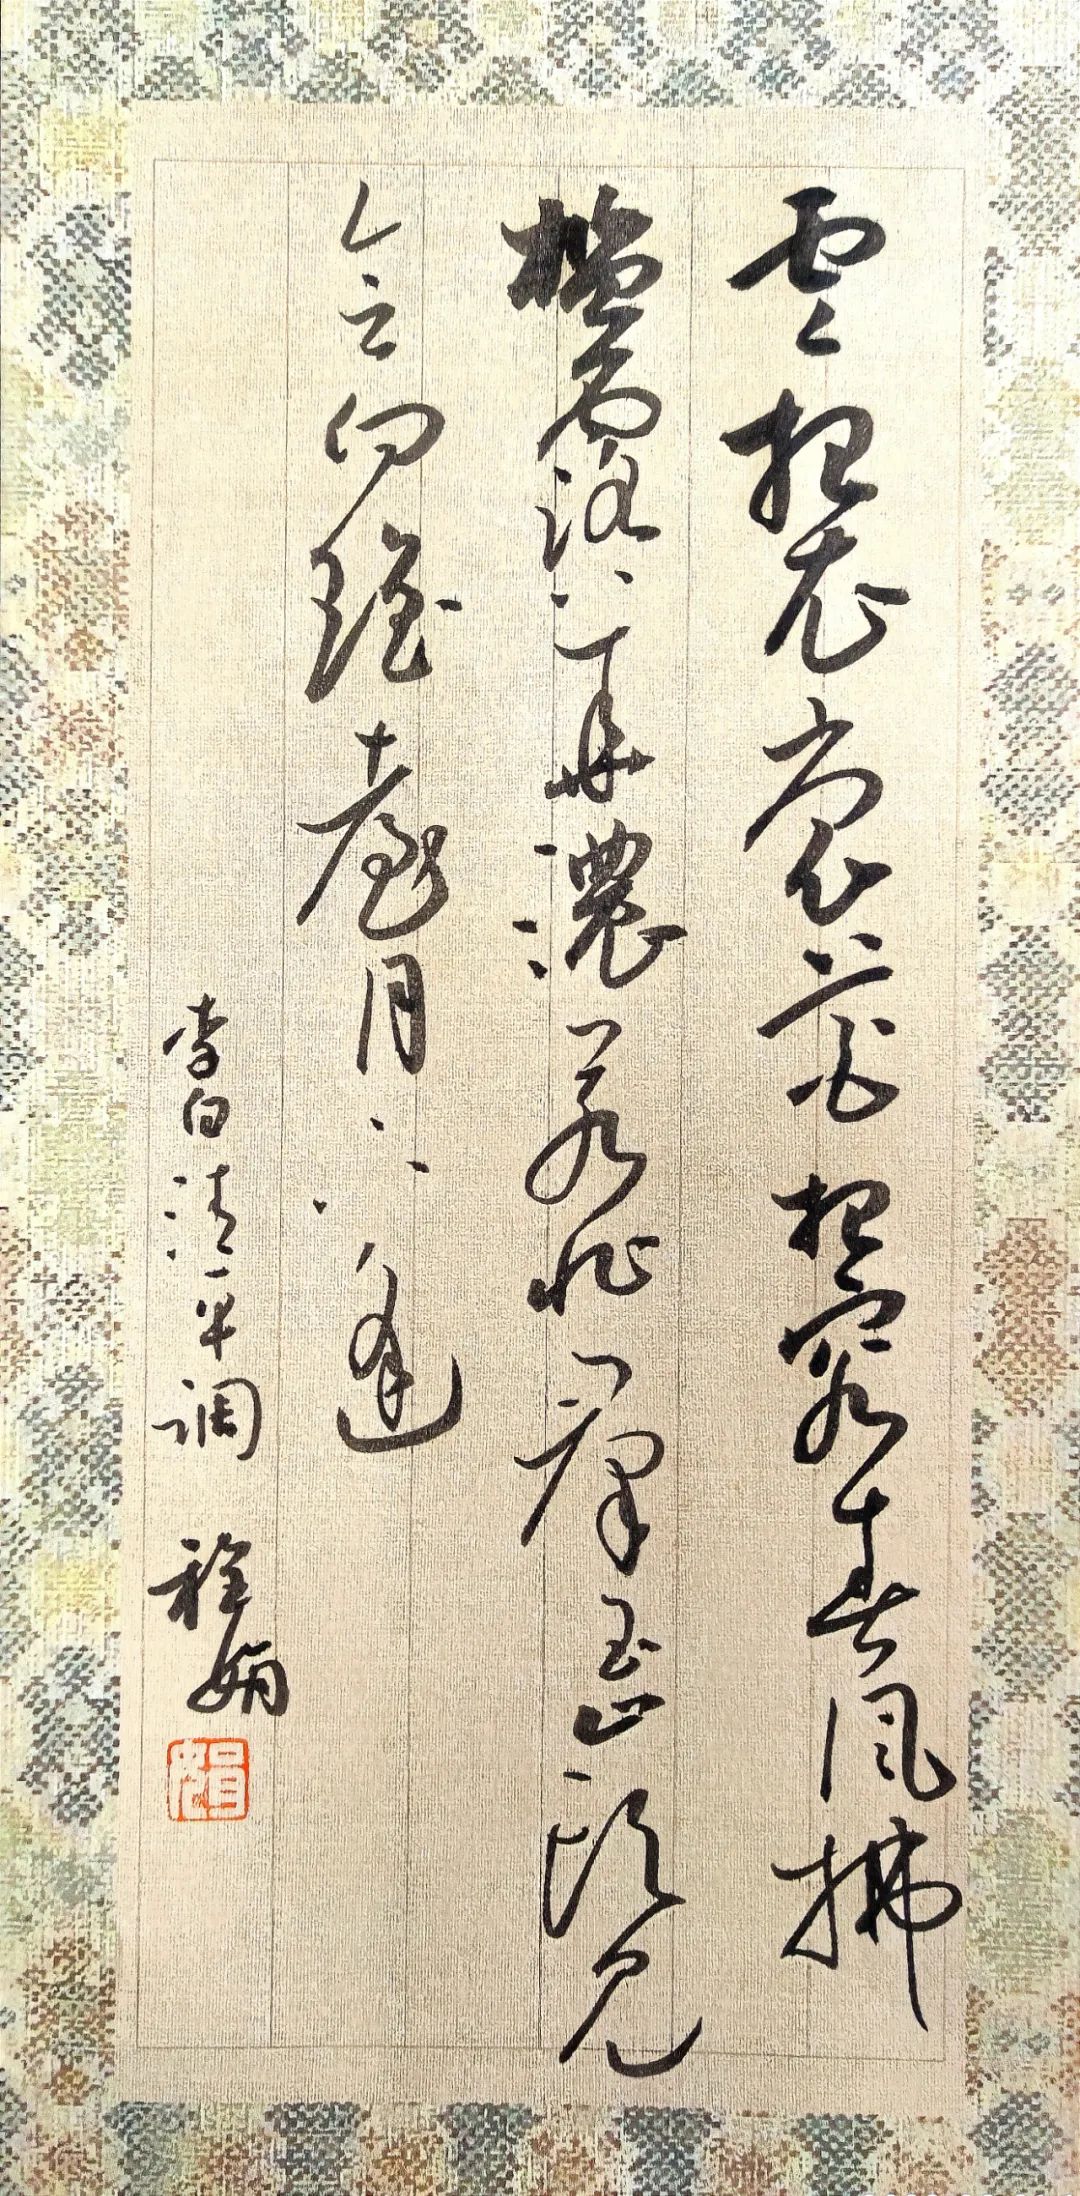 雲想衣裳花想容春風拂
檻露華濃若非群玉山頭見
会向瑶臺月下逢
李白清平调 程娟